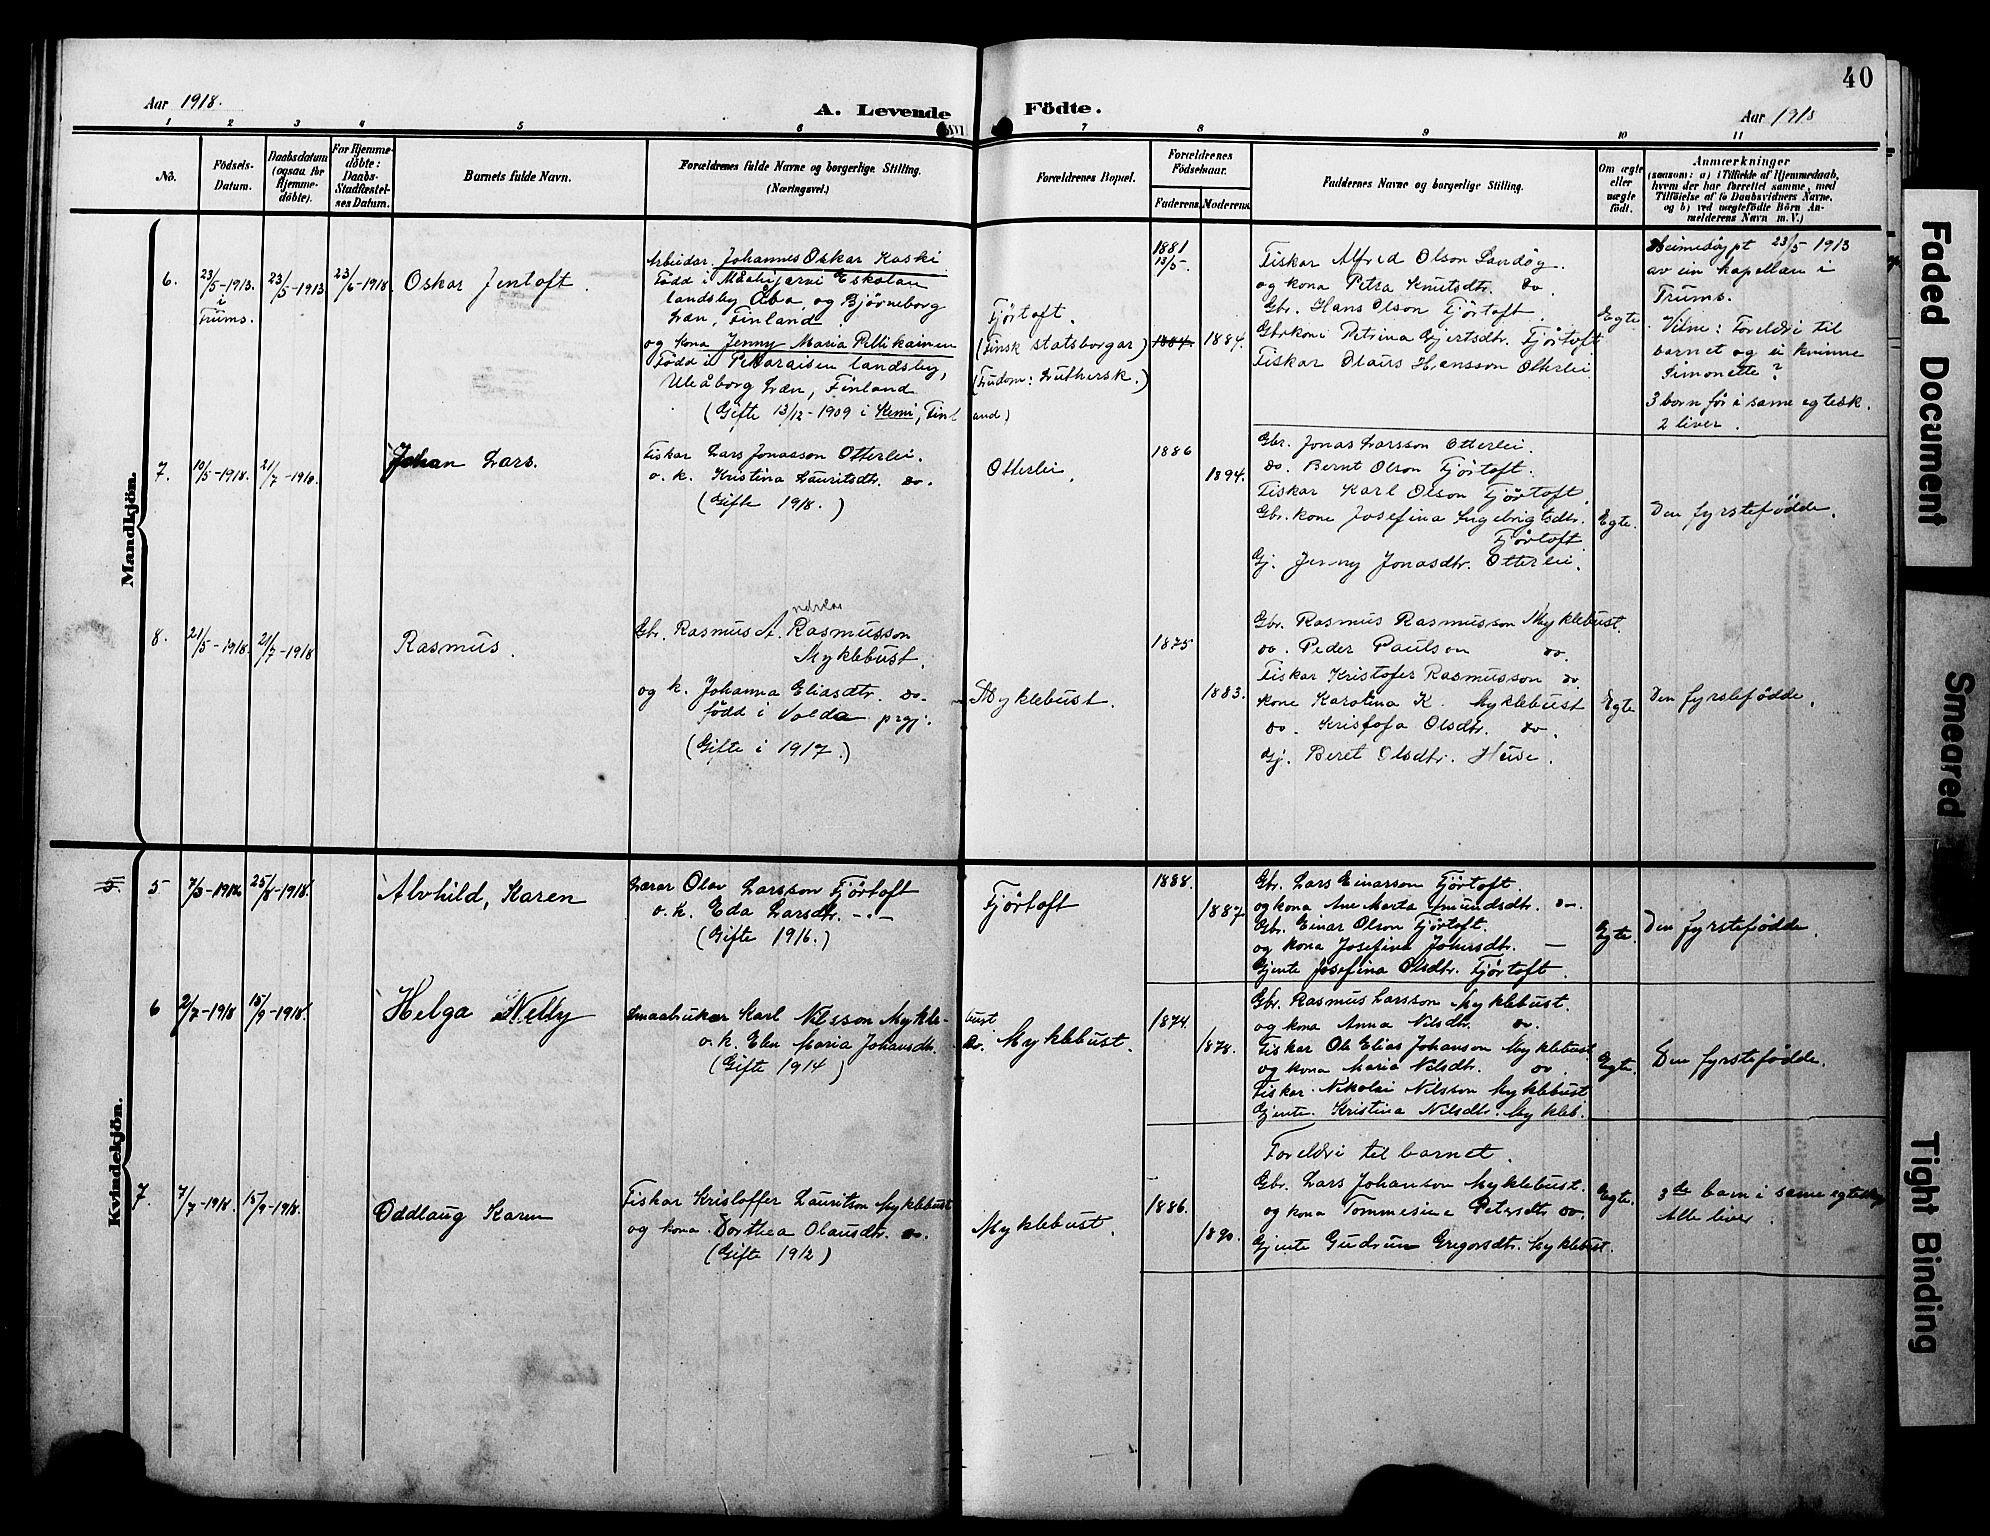 40
Aar 1918.
A. Levende Födte.
Aar 1918
1 2 3 4 5 6 7 8 9 10 11
No.
Födsels-Datum.
Daabsdatum (ogsaa for Hjemme-döbte).
For Hjemme-döbte: Daabs-Stadfæstel-ses Datum.
Barnets fulde Navn.
Forældrenes fulde Navne og borgerlige Stilling.
(Næringsvei.)
Forældrenes Bopæl.
Forældrenes Födselsaar.
Faderens. Moderens.
Faddernes Navne og borgerlige Stilling.
Om ægte eller uægte födt.
Anmærkninger
(saasom: a) i Tilfælde af Hjemmedaab,
hvem der har forrettet samme, med
Tilföielse af to Daabsvidners Navne,
og b) ved uægtefödte Börn An-
melderens Navn m. V.)
Mandkjön.
6. 23/5-1913. i Trums. 23/5-1913 23/6-1918 Oskar Jentoft.
Arbeidar Johannes Oskar Kaski
Född i
landsby Åbo og Bjørneborg
Læn, Finland.
og kona Jenny Maria Pellikainen
Född i landsby,
Uleåborg Læn, Finland
(Gifte 13/12-1909 i Kemi, Finland)
Fjørtoft.
(Finsk statsborgar)
(Trudom: Luthersk.)
1881 13/5.
1884.
Fiskar Alfred Olson Sandøy.
og kona Petra Knutsdtr. do.
Gbr. Hans Olson Fjørtoft.
Gbrkone Petrina Gjertsdtr. Fjørtoft
Fiskar Olaus Hansson Otterlei
Egte
Heimedøypt 23/5-1913
av ein kapellan i
Trums.
Vitne: Foreldri til
barnet og ei kvinne
Simonette?
3 born før i same egtesk.
2 liver.
7. 10/5-1918. 21/7-1918. Johan Lars.
Fiskar Lars Jonasson Otterlei.
o. k. Kristina Lauritsdtr. do.
(Gifte 1918.)
Otterlei.
1886
1894.
Gbr. Jonas Larsson Otterlei.
do. Bernt Olson Fjørtoft.
Fiskar Karl Olson Fjørtoft.
Gbr.kone Josefina Ingebrigtsdtr.
Fjørtoft
Gj. Jenny Jonasdtr. Otterlei.
Egte.
Den fyrstefødde.
8. 21/5-1918. 21/7-1918 Rasmus.
Gbr. Rasmus Andreas Rasmusson
Myklebust.
og k. Johanna Eliasdtr. do.
född i Volda prgj.
(Gifte i 1917.)
Myklebust.
1875
1883.
Gbr. Rasmus Rasmusson Myklebust.
do. Peder Paulson do.
Fiskar Kristofer Rasmusson do.
kone Karolina K. Myklebust
do. Kristofa Olsdtr. do.
Gj. Beret Olsdtr. Huse.
Egte
Den fyrstefødde.
Kvindekjön.
5. 5 25/8-1918. Alvhild, Karen
Lærar Olav Larsson Fjørtoft
o. k. Eda Larsdtr. -"-
(Gifte 1916.)
Fjørtoft
1888.
1887
Gbr. Lars Einarson Fjørtoft.
og kona Ane Marta Amundsdtr. do-
Gbr. Einar Olson Fjørtoft.
og kona Josefina Johansdtr. —
Gjente Josefina Olsdtr. Fjørtoft.
Egte.
Den fyrstefødde.
6 2/7-1918 15/9-1918. Helga Nelly
Smaabrukar Karl Nilsson Mykle-bust
o. k. Elen Maria Johansdtr. do.
(Gifte 1914)
Myklebust.
1874.
1878.
Gbr. Rasmus Larsson Myklebust.
og kona Anna Nilsdtr. do.
Fiskar Ole Elias Johanson Myklebust
og kona Maria Nilsdtr. do.
Fiskar Nikolai Nilsson Myklebust
Gjente. Kristina Nilsdtr. Mykleb.
Egte.
Den fyrstefødde.
7. 7/7-1918. 15/9-1918. Oddlaug Karen
Fiskar Kristoffer Lauritson Myklebust
og kona Dorthea Olausdtr. do.
(Gifte 1912)
Myklebust.
1886.
1890.
Foreldri til barnet.
Gbr. Lars Johanson Myklebust.
og kona Tommesine Petersdtr do.
Gjente Gudrun Gregorsdtr. Myklebust.
Egte.
3de barn i same egtesk.
Alle liver.
Faded Document
Smeared
Tight Binding